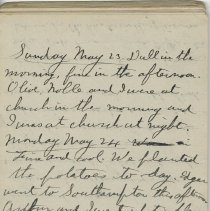 Sunday May 23. Dull in the
morning, fine in the afternoon
Olive, Nolle and I were at
church in the morning and
I was at church at night.
Monday May 24
Fine and cool We planted
the potatoes to day.
went to Southampton this afternoon
and I